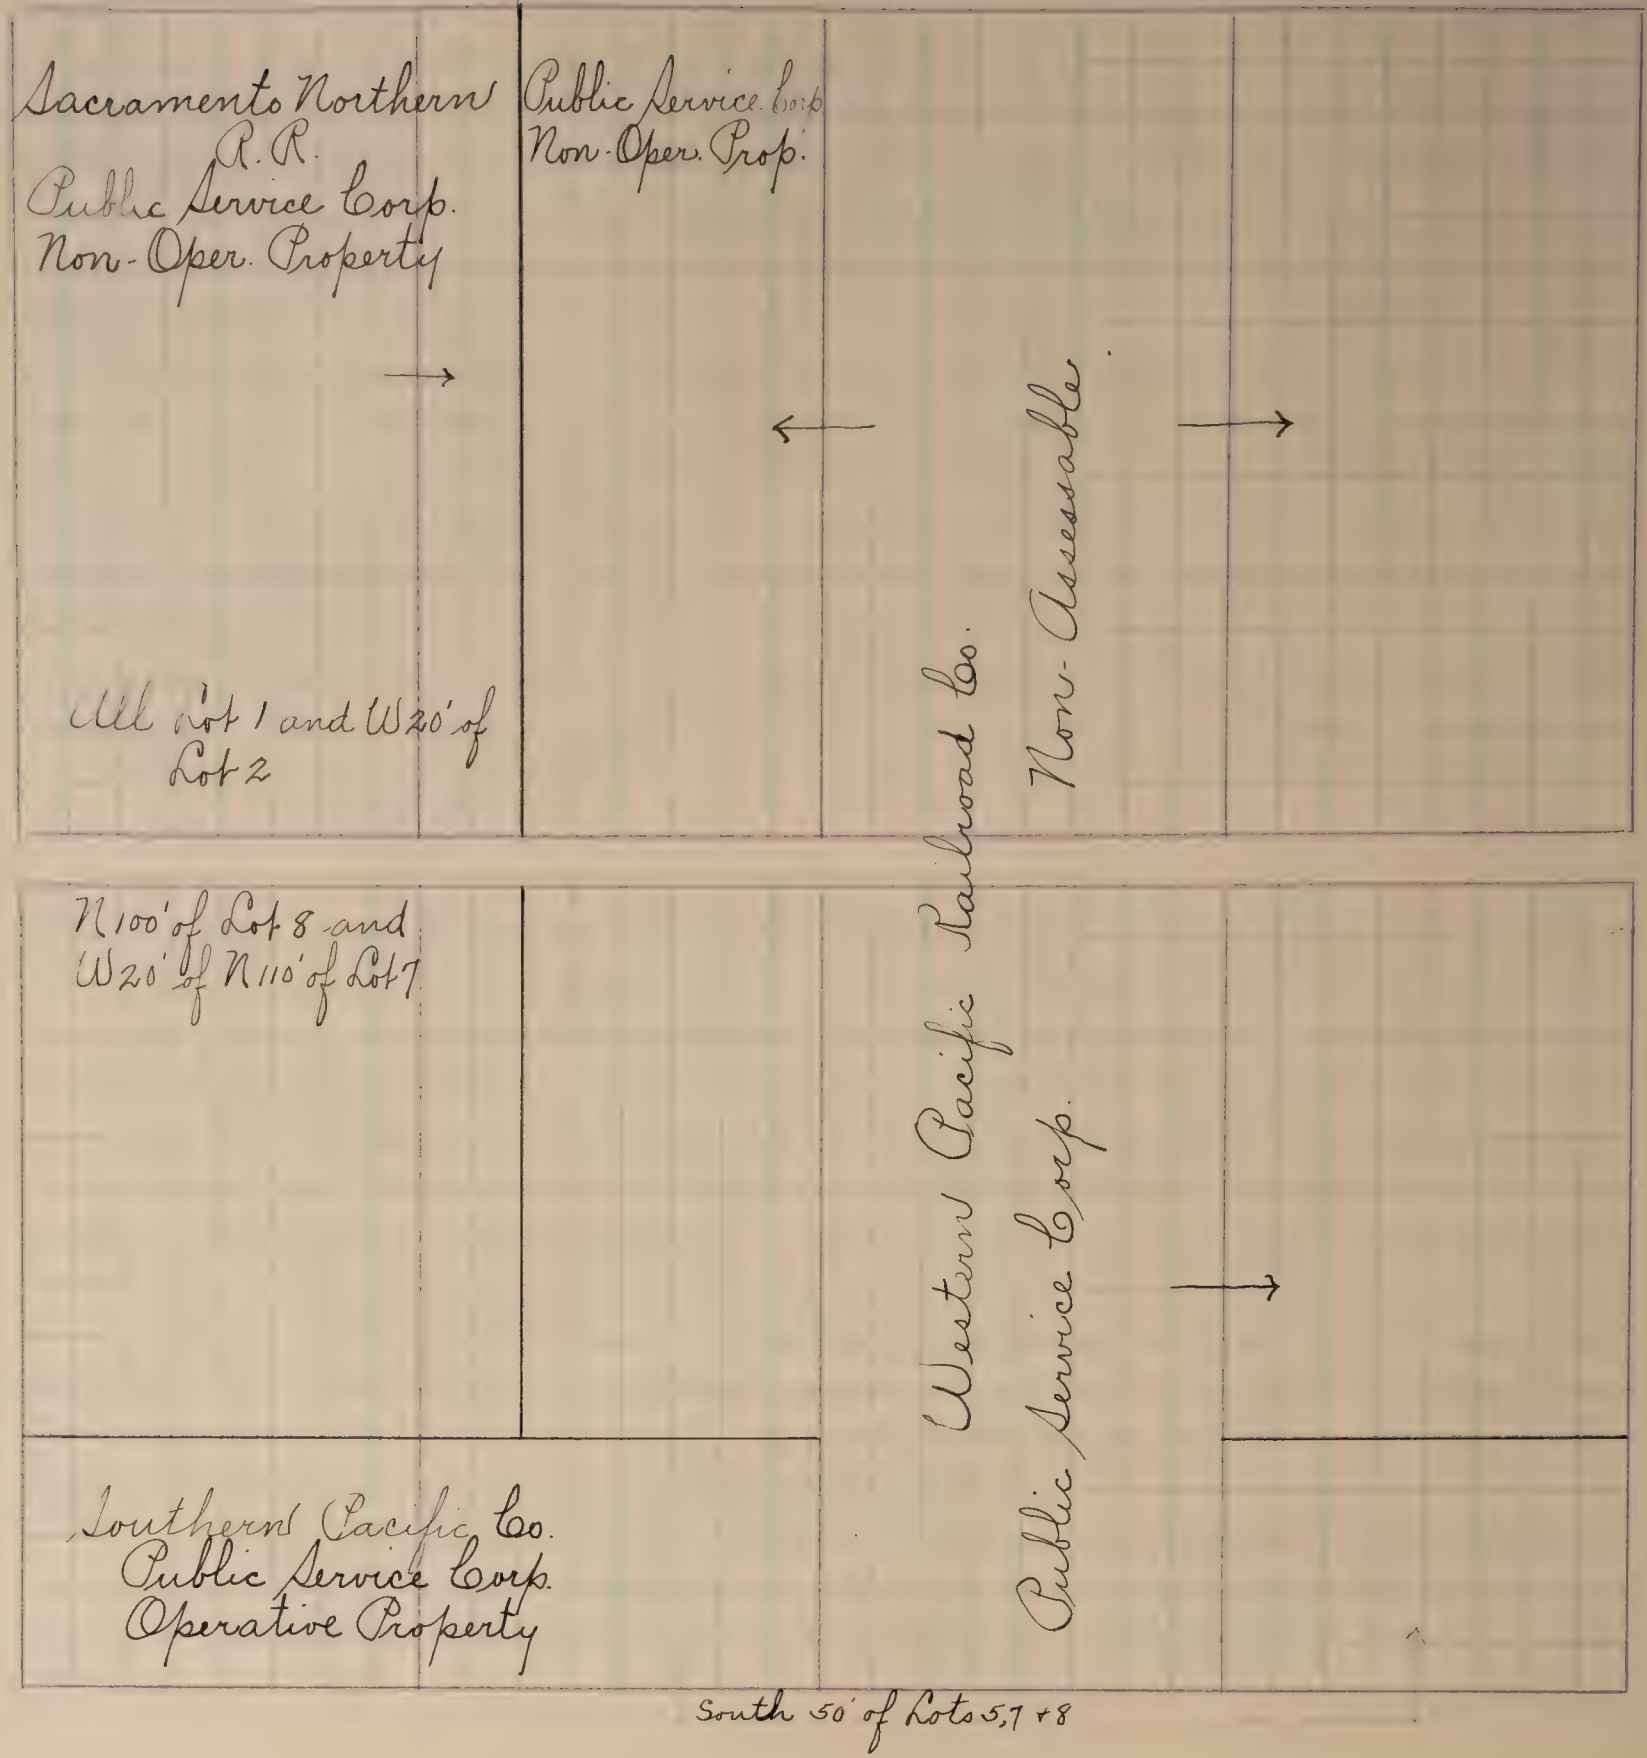 Sacramento Northern
R. R.
Public Service Corp.
Non-Oper. Property
Public Service Corp
Non-Oper. Prop.
All Lot 1 and W20' of
Lot 2
N100' of Lot 8 and
W20' of N110' of Lot 7
Western Pacific Railroad Co.
Public Service Corp. Non-Assessable
Southern Pacific Co.
Public Service Corp.
Operative Property
South 50' of Lots 5,7 + 8